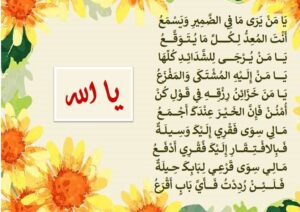 يَا مَنْ يَرَى مَا فِي الضَّمِيرِ وَيَسْمَعُ
أَنْتَ الْمُعِدُّ لِكُلِّ مَا يُتَوَقَّعُ
يَا مَنْ يُرَجَى لِلشَّدَائِدِ كُلِّهَا
يَا مَنْ إِلَيْهِ الْمُشْتَكَى وَالْمَفْزَعُ
يَا مَنْ خَزَائِنُ رِزْقِهِ فِي قَوْلِ كُنْ
أُمْنُنْ فَإِنَّ الْخَيْرَ عِنْدَكَ أَجْمَعُ
مَالِي سِوَى فَقْرِي إِلَيْكَ وَسِيلَةٌ
فَبِالِافْتِقَارِ إِلَيْكَ فَقْرِي أَدْفَعُ
مَالِي سِوَى قَرْعِي لِبَابِكَ حِيلَةٌ
فَلَئِنْ رُدِدْتُ فَأَيَّ بَابٍ أَقْرَعُ
يا الله